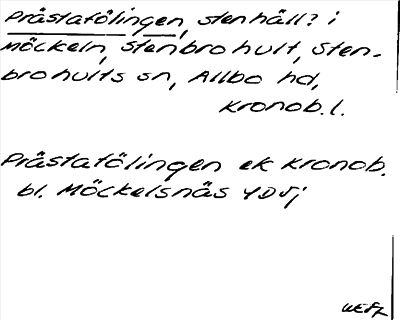 Pråstafölingen, stenhäll? i
Möckeln, Stenbrohult, Sten-
brohults sn, Allbo hd,
Kronob. l.
Pråstafölingen ek Kronob.
bl. Möckelsnäs